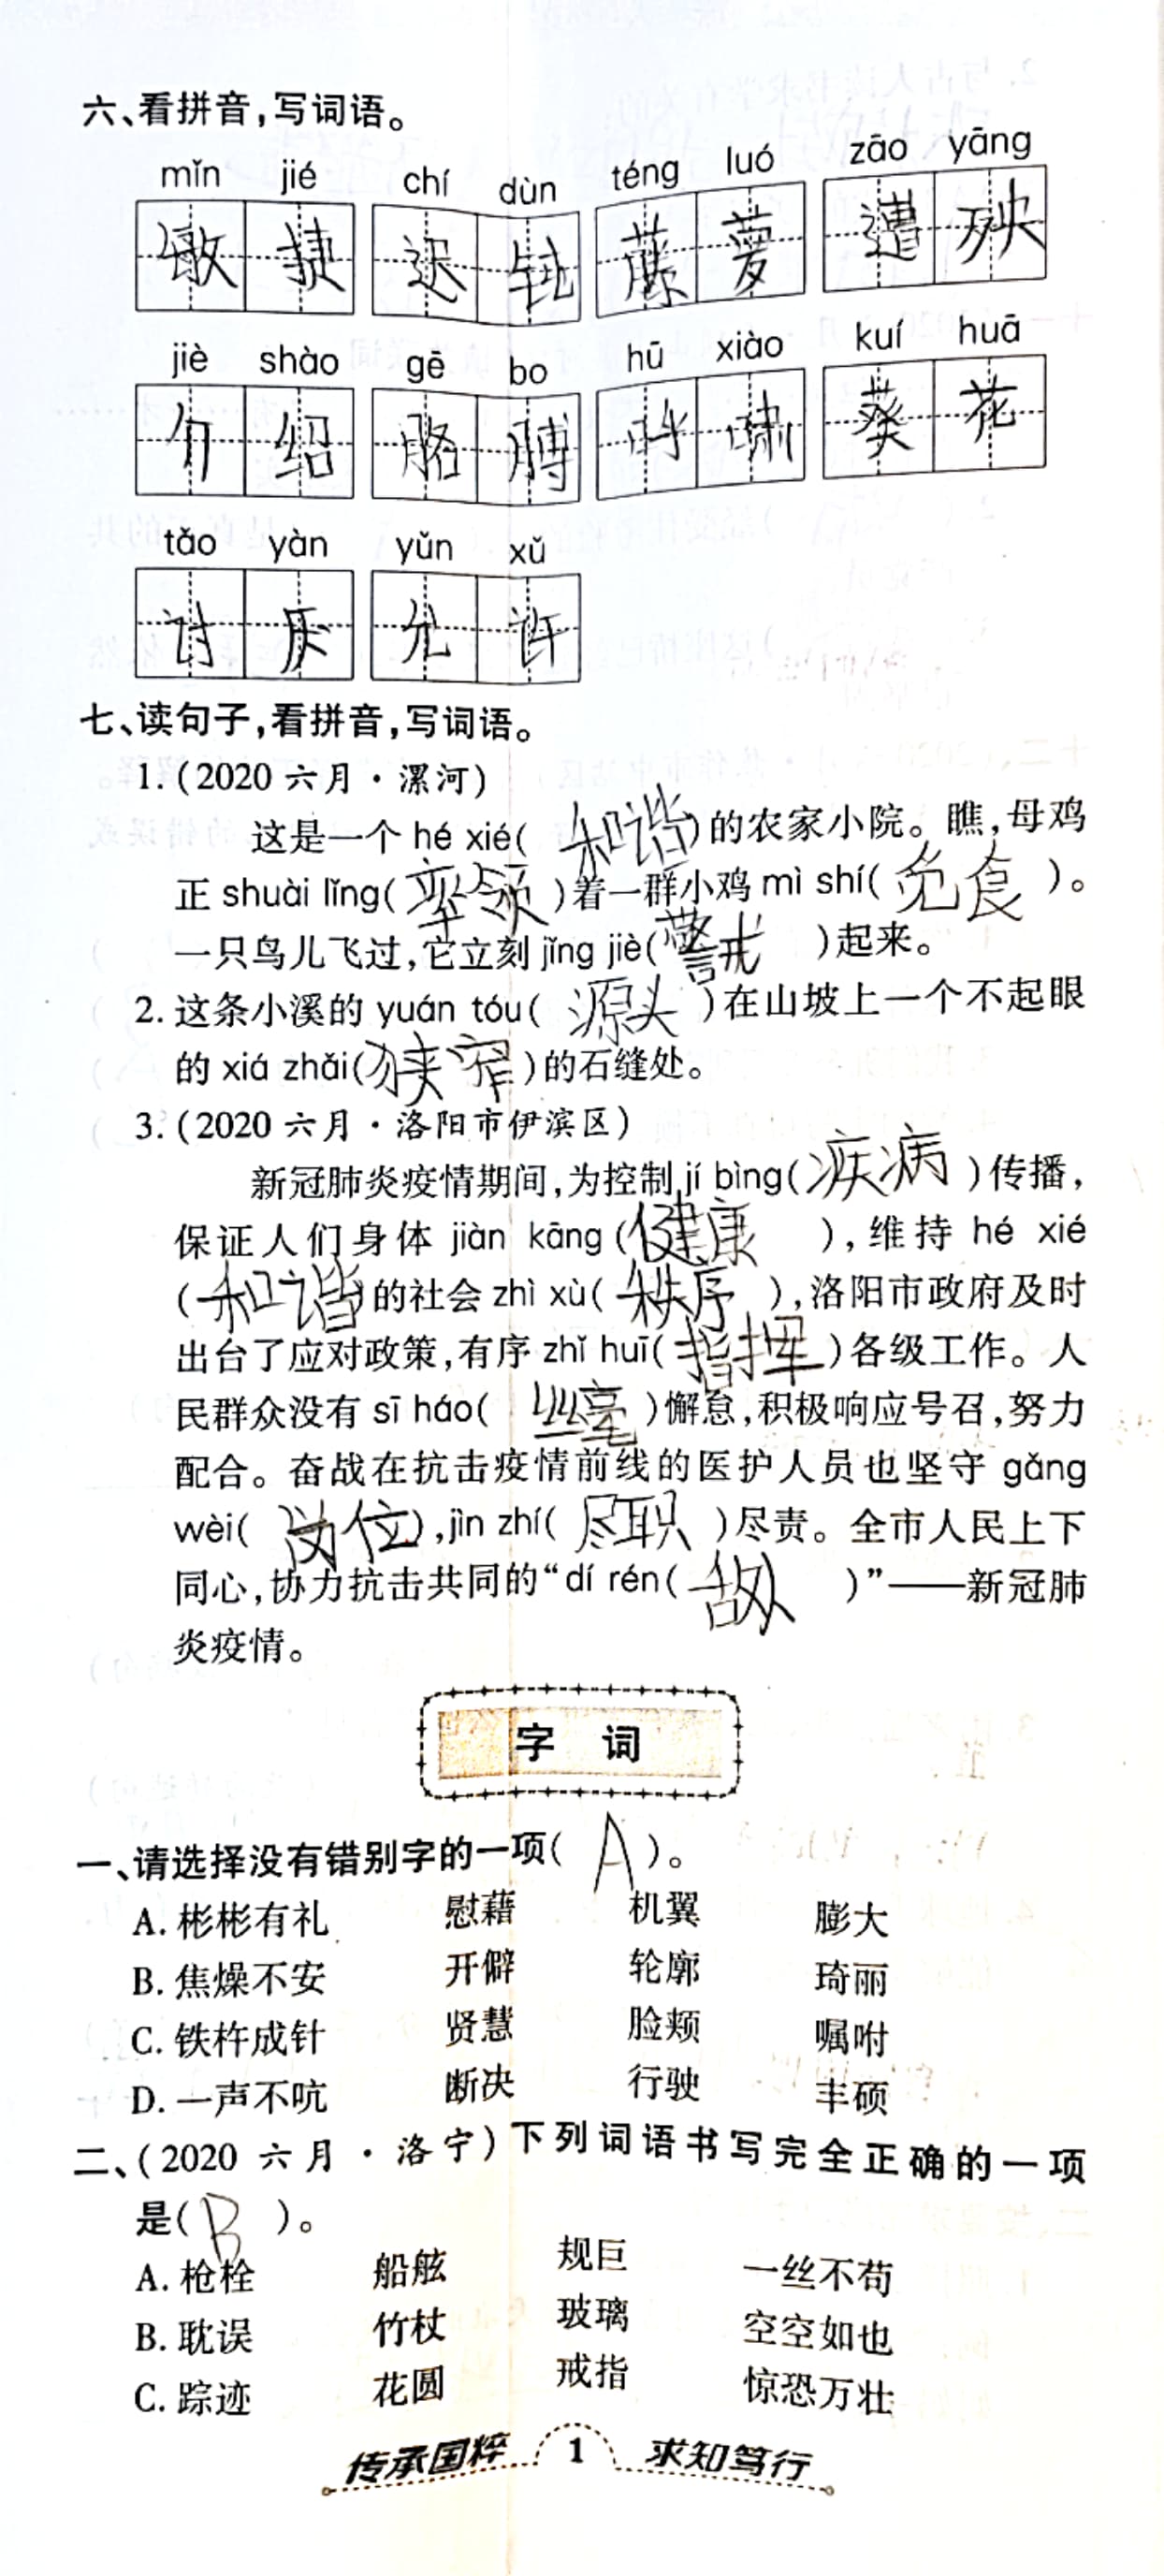 六、看拼音,写词语。
mǐn jié chí dùn téng luó zāo yāng
敏捷 迟钝 藤萝 遭殃
jiè shào gē bo hū xiào kuí huā
介绍 胳膊 呼啸 葵花
tǎo yàn yǔn xǔ
讨厌 允许
七、读句子,看拼音,写词语。
1.(2020 六月·漯河)
这是一个 hé xié(和谐)的农家小院。瞧,母鸡
正 shuài lǐng(率领)着一群小鸡 mì shí(免食)。
一只鸟儿飞过,它立刻 jǐng jiè(警戒)起来。
2. 这条小溪的 yuán tóu(源头)在山坡上一个不起眼
的 xiá zhǎi(狭窄)的石缝处。
3.(2020 六月·洛阳市伊滨区)
新冠肺炎疫情期间,为控制 jí bìng(疾病)传播,
保证人们身体 jiàn kāng(健康),维持 hé xié
(和谐)的社会 zhì xù(秩序),洛阳市政府及时
出台了应对政策,有序 zhǐ huī(指挥)各级工作。人
民群众没有 sī háo(丝毫)懈怠,积极响应号召,努力
配合。奋战在抗击疫情前线的医护人员也坚守 gǎng
wèi(岗位),jìn zhí(尽职)尽责。全市人民上下
同心,协力抗击共同的“dí rén(敌人)”——新冠肺
炎疫情。
字 词
一、请选择没有错别字的一项(A)。
A. 彬彬有礼 慰藉 机翼 膨大
B. 焦燥不安 开僻 轮廓 琦丽
C. 铁杵成针 贤慧 脸颊 嘱咐
D. 一声不吭 断决 行驶 丰硕
二、(2020 六月·洛宁)下列词语书写完全正确的一项
是(B)。
A. 枪栓 船舷 规巨 一丝不苟
B. 耽误 竹杖 玻璃 空空如也
C. 踪迹 花圆 戒指 惊恐万壮
传承国粹 1 求知笃行